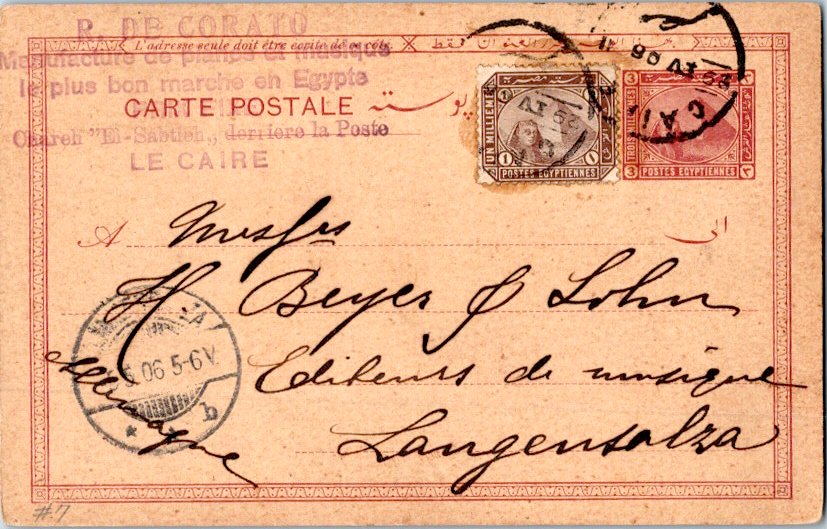 P. DE CORATO
L'adresse seule doit être écrite de ce côté
Manufacture de pianos et musique
le plus bon marche en Egypte
CARTE POSTALE
Chareh "El-Sabtieh", derriere la Poste
LE CAIRE
UN MILLIEME
1 1
POSTES EGYPTIENNES
3
POSTES EGYPTIENNES
CAI
29 IV 06
A
الى
Messrs
H Beyer & Sohn
Editeurs de musique
Langensalza
Allemagne
06 5-6 V.
b
#7